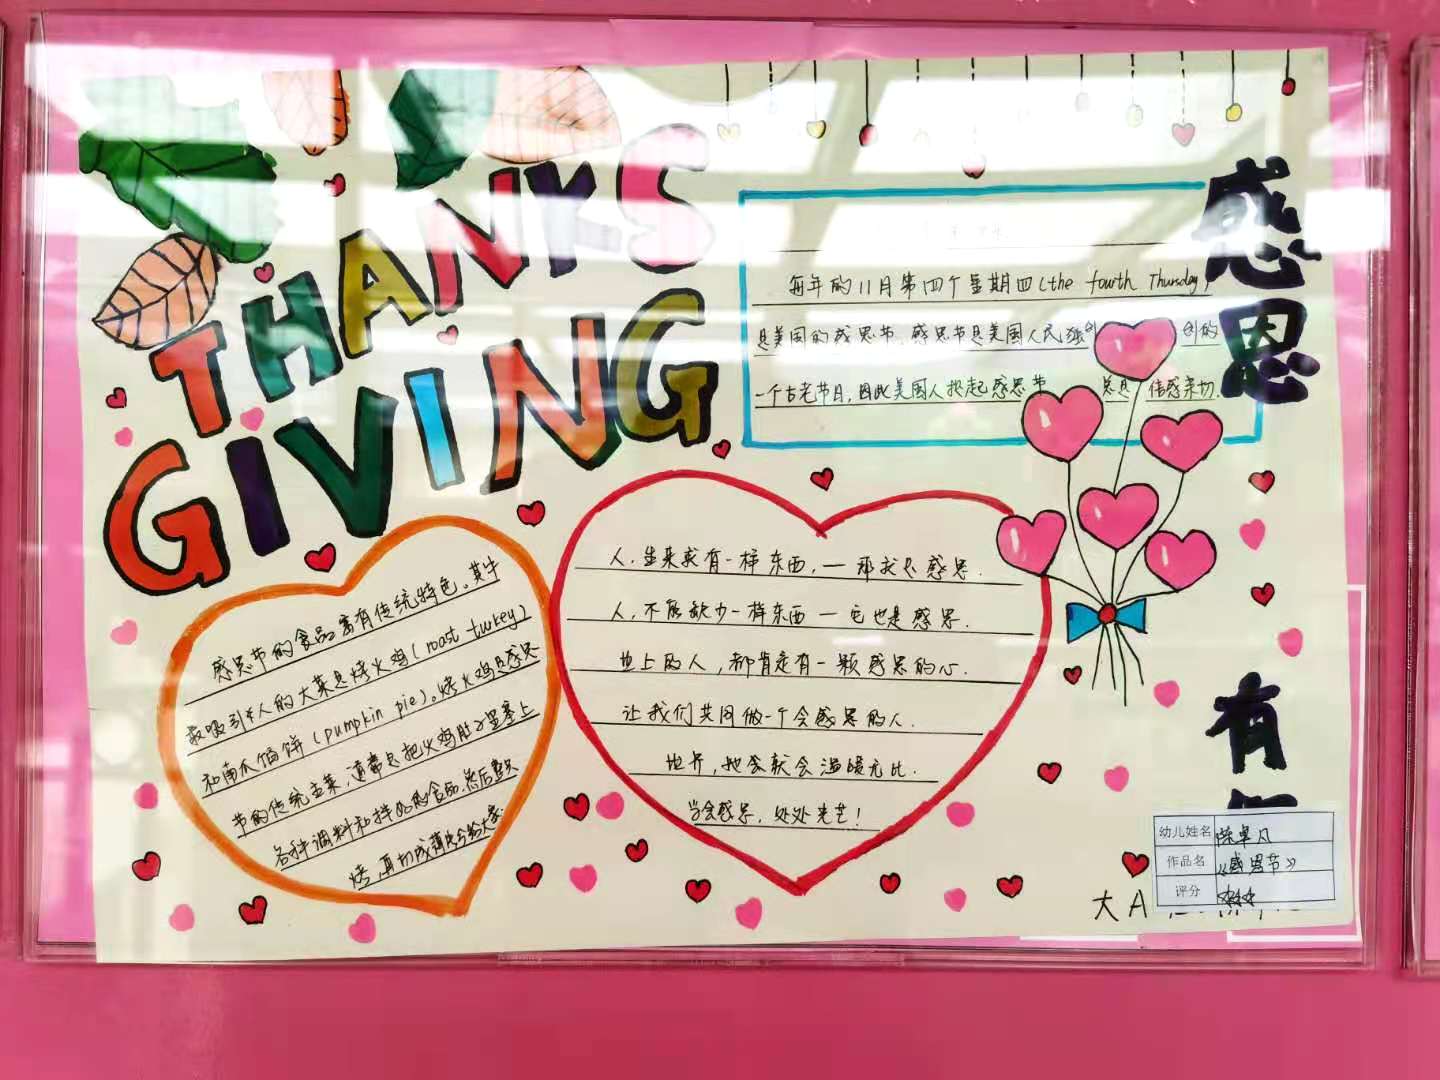 THANKS
GIVING
感恩
有
每年的11月第四个星期四(the fourth Thursday)
是美国的感恩节.感恩节是美国人民独创的
一个古老节日,因此美国人提起感恩节总是倍感亲切.
感恩节的食品富有传统特色。其中
最吸引人的大菜是烤火鸡(roast turkey)
和南瓜馅饼(pumpkin pie)。烤火鸡是感恩
节的传统主菜,通常是把火鸡肚子里塞上
各种调料和拌好的食品.然后整只
烤,再切成薄片分给大家.
人,生来就有一样东西,—那就是感恩.
人,不能缺少一样东西—它也是感恩.
世上的人,都肯定有一颗感恩的心.
让我们共同做一个会感恩的人.
世界,她会就会温暖无比.
学会感恩,处处光芒!
幼儿姓名 陈卓凡
作品名 《感恩节》
评分 ☆☆☆
大A